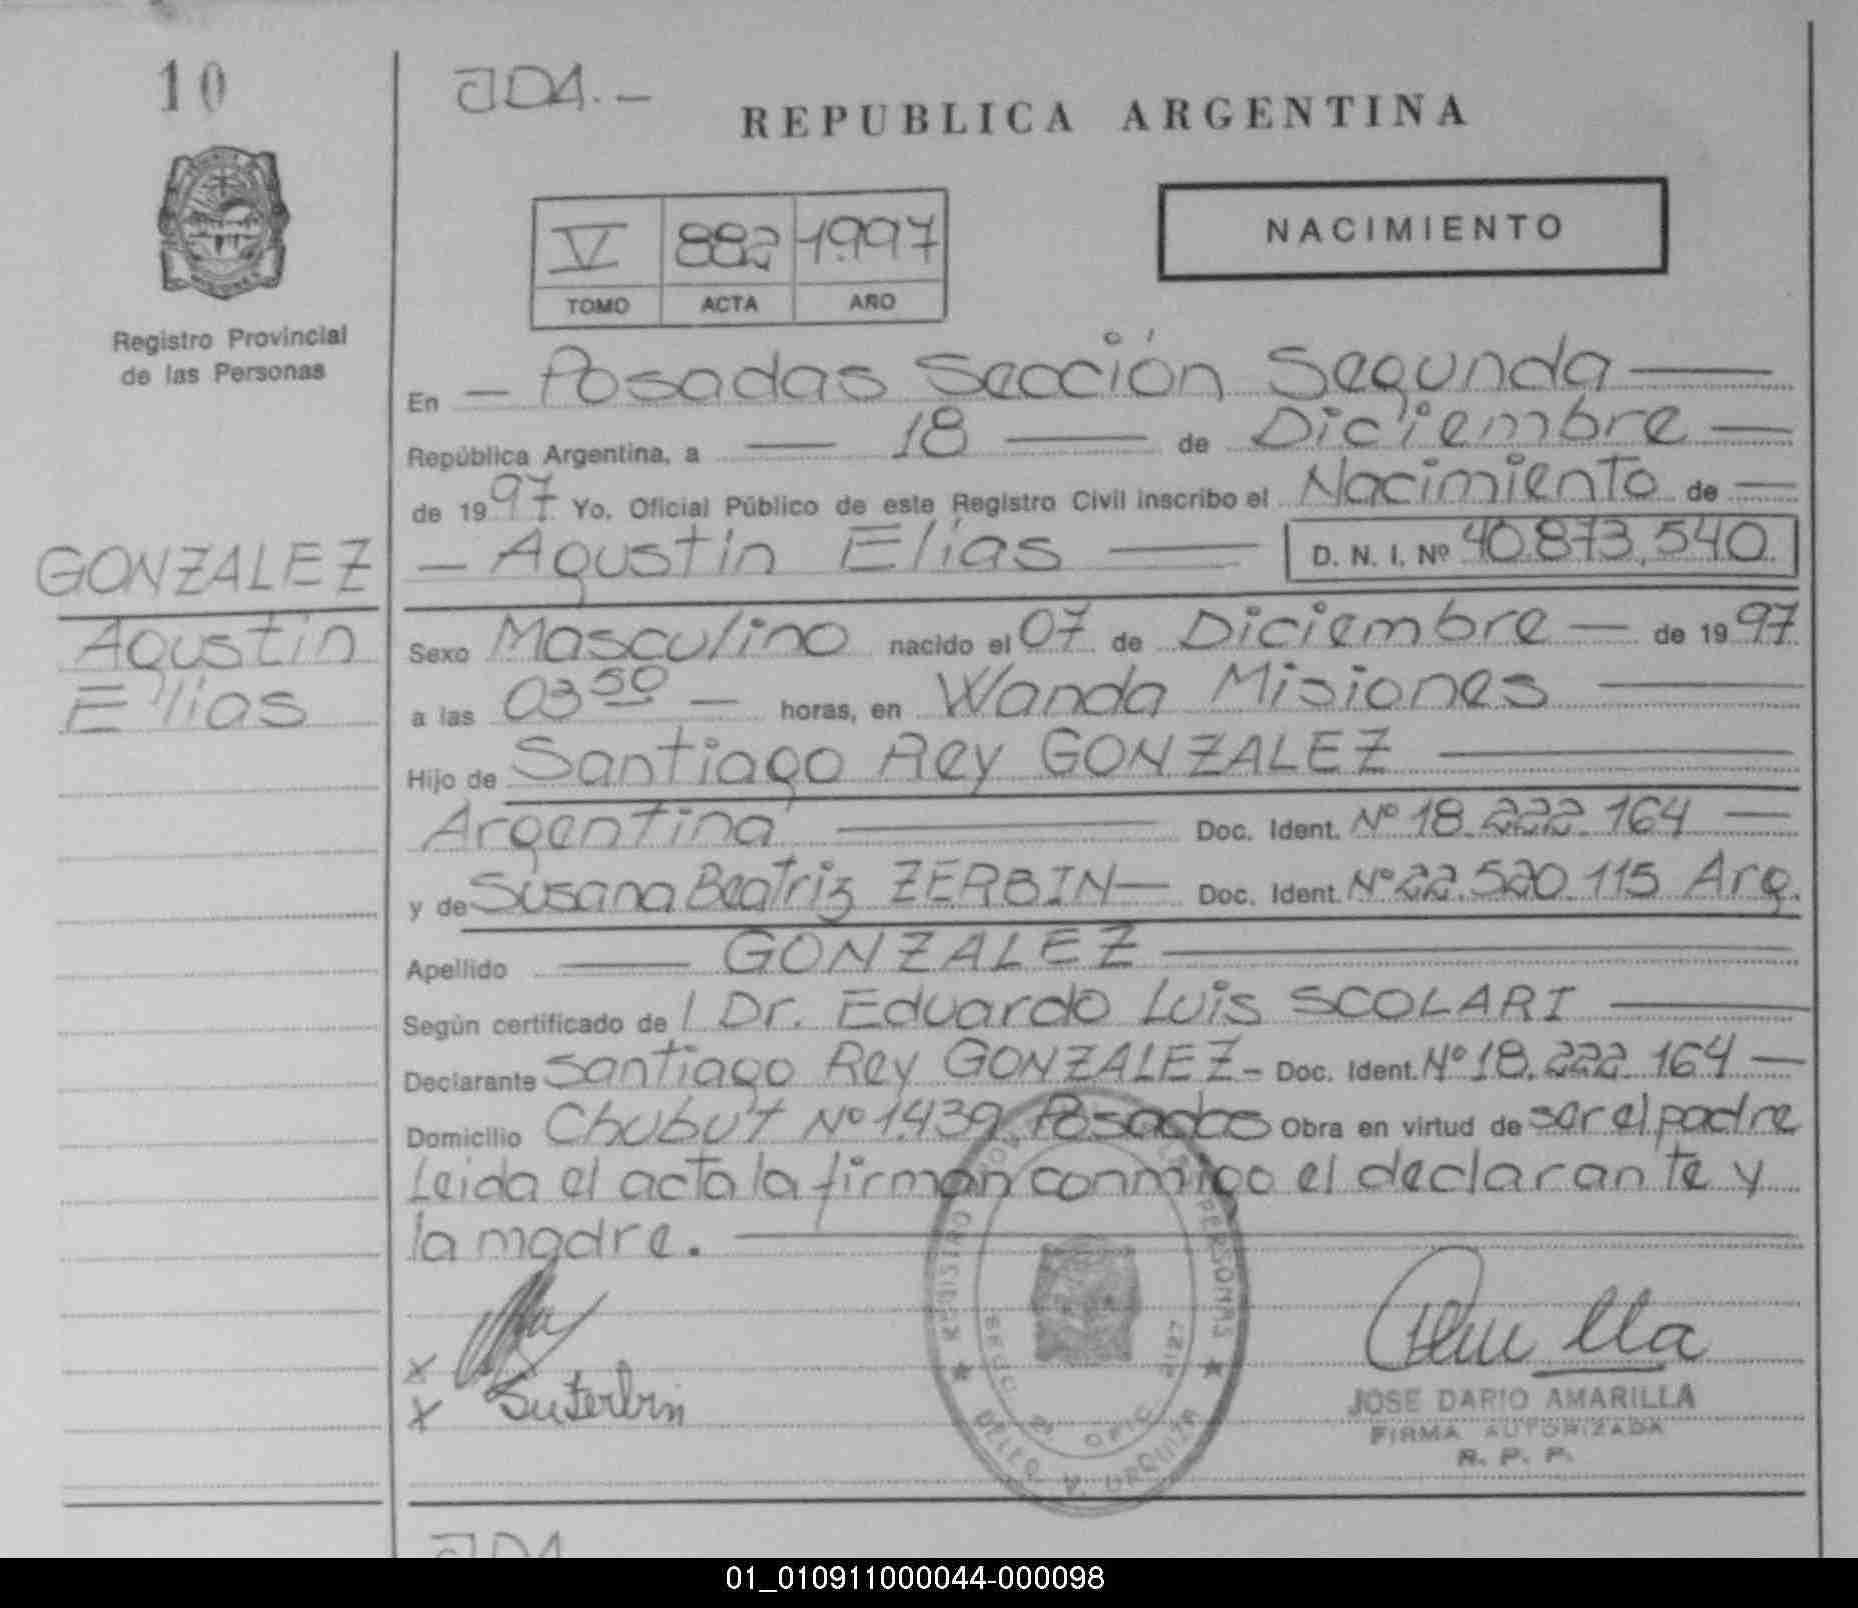 10
JDA.-
REPUBLICA ARGENTINA
V 882 1.997
TOMO ACTA AÑO
NACIMIENTO
Registro Provincial
de las Personas
En — Posadas Sección Segunda —
República Argentina, a — 18 — de Diciembre —
de 1997 Yo, Oficial Público de este Registro Civil inscribo el Nacimiento de —
— Agustin Elias — D. N. I. Nº 40.873.540
GONZALEZ
Agustin
Elias
Sexo Masculino nacido el 07 de Diciembre — de 1997
a las 03 50 — horas, en Wanda Misiones —
Hijo de Santiago Rey GONZALEZ —
Argentina — Doc. Ident. Nº 18.222.164 —
y de Susana Beatriz ZERBIN — Doc. Ident. Nº 22.520.115 Arg.
Apellido — GONZALEZ —
Según certificado de l Dr. Eduardo Luis SCOLARI —
Declarante Santiago Rey GONZALEZ - Doc. Ident. Nº 18.222.164 —
Domicilio Chubut Nº 1.439 Posadas Obra en virtud de ser el padre
Leida el acta la firman conmigo el declarante y
la madre. —
x
x Su Zerbin
REGISTRO PERSONAS
SECC 2ª OFIC
URQUIZA
JOSE DARIO AMARILLA
FIRMA AUTORIZADA
R. P. P.
JDA
01_010911000044-000098